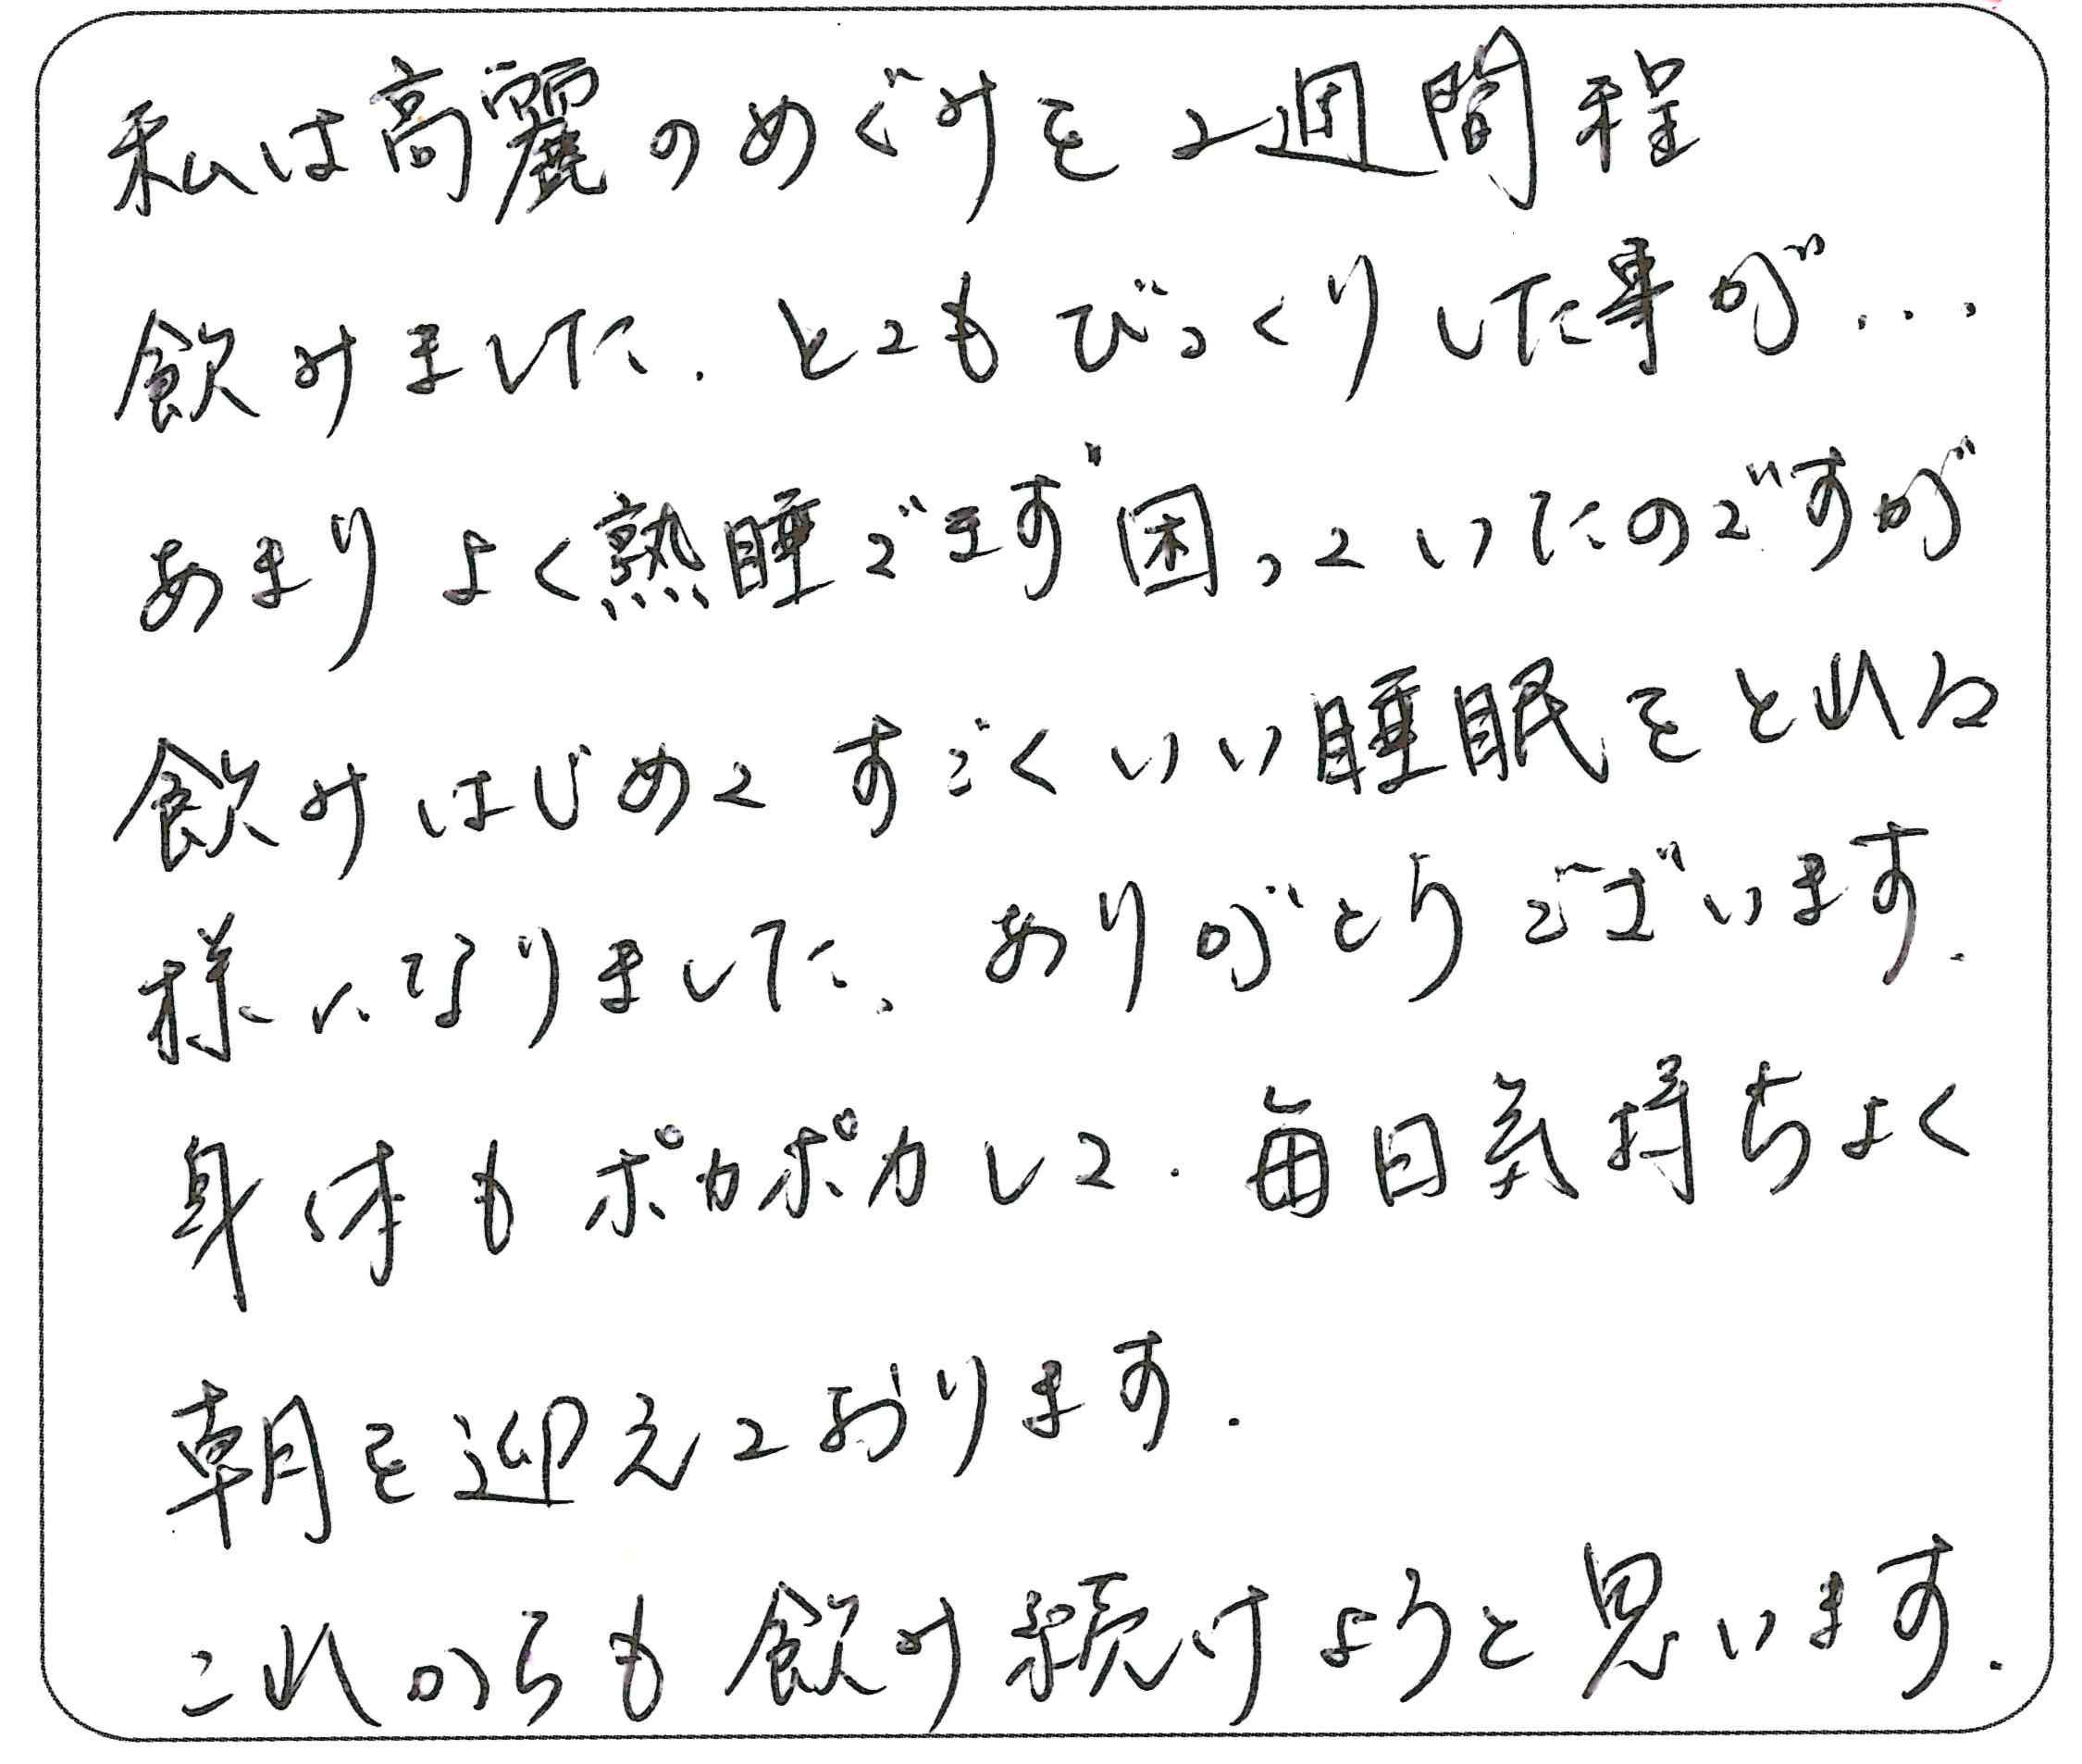 私は高麗のめぐみを2週間程
飲みました．とてもびっくりした事が...
あまりよく熟睡できず困っていたのですが
飲みはじめてすごくいい睡眠をとれる
様になりました．ありがとうございます．
身体もポカポカして．毎日気持ちよく
朝を迎えております．
これからも飲み続けようと思います．